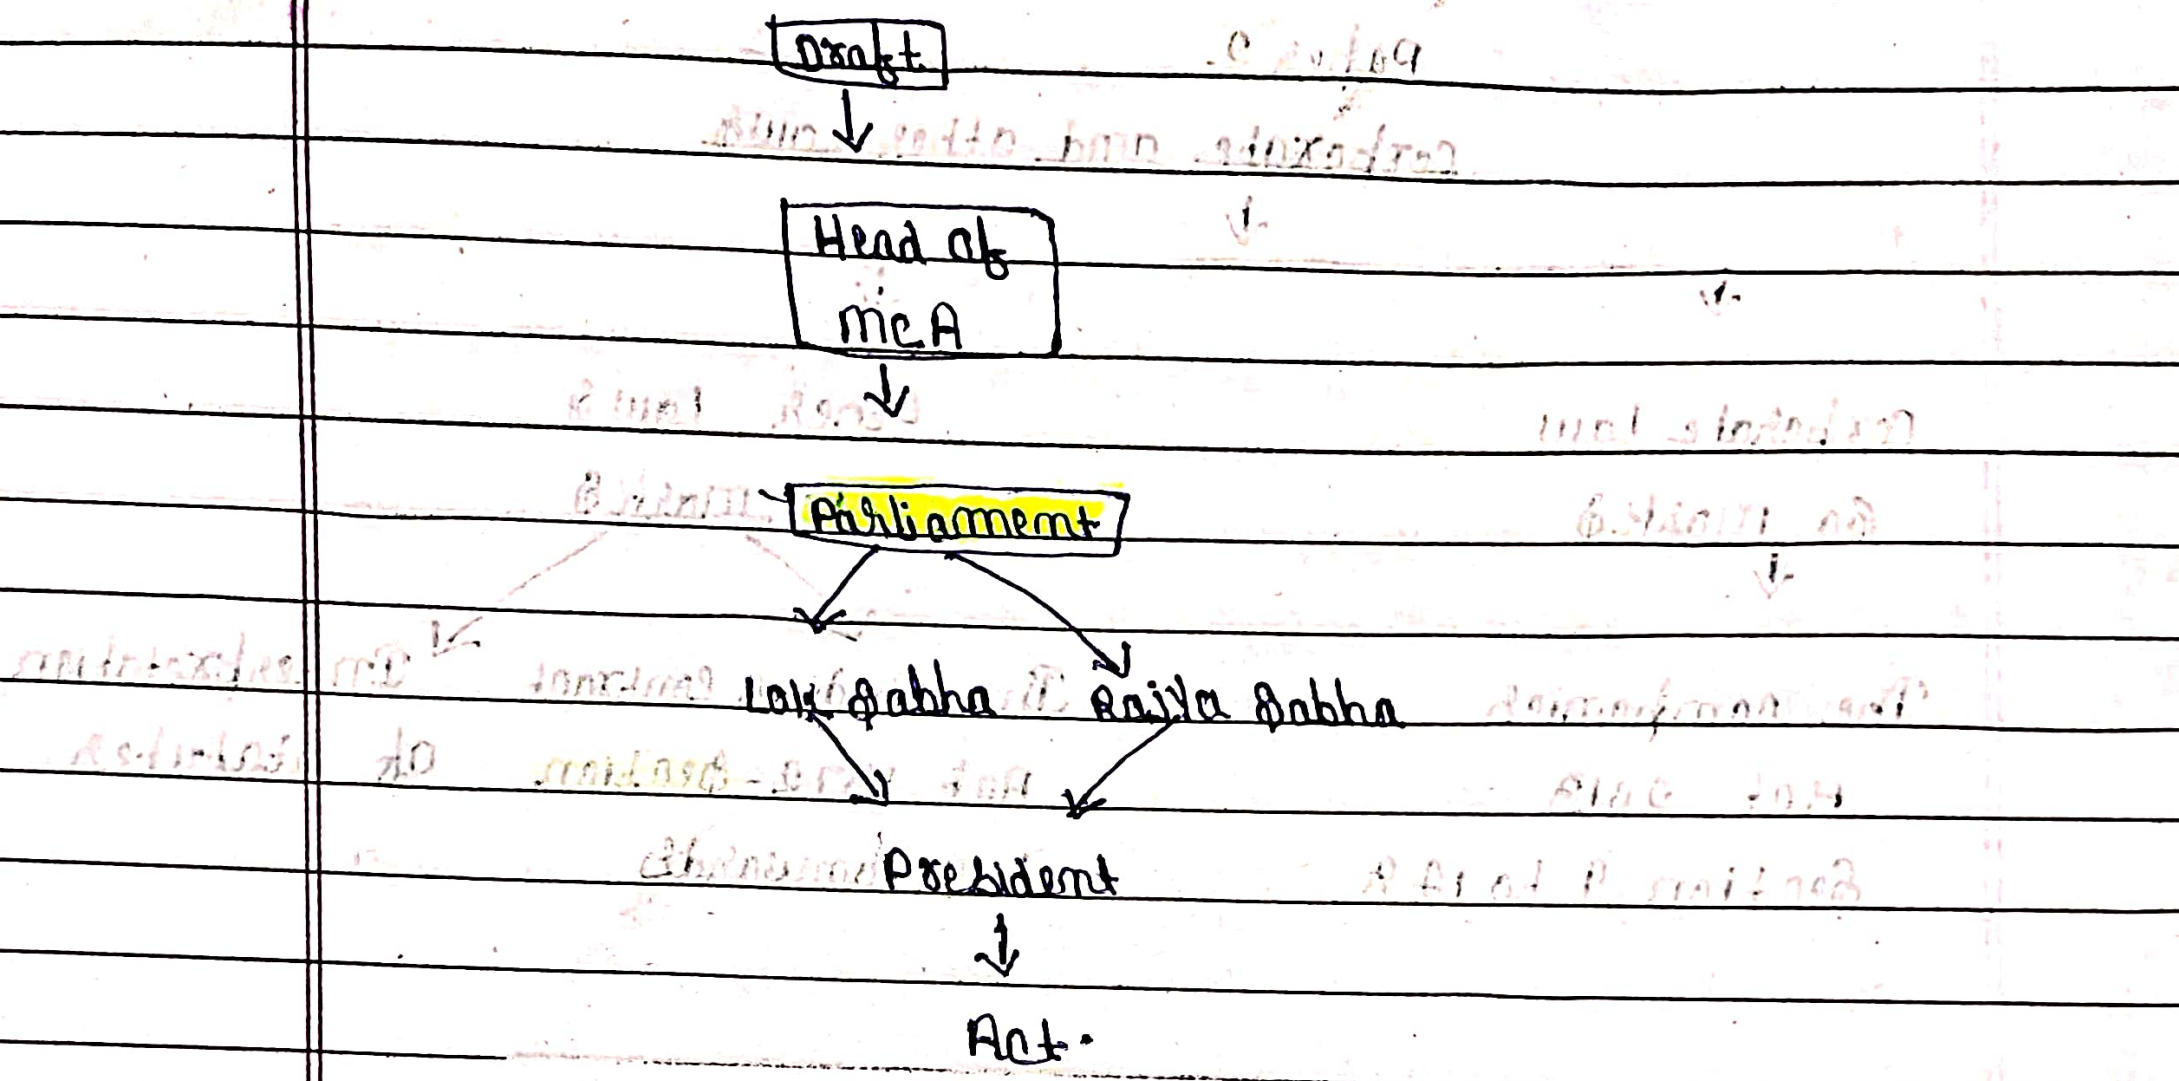 Draft
Head of
MCA
Parliament
Lok Sabha Rajya Sabha
President
Act.